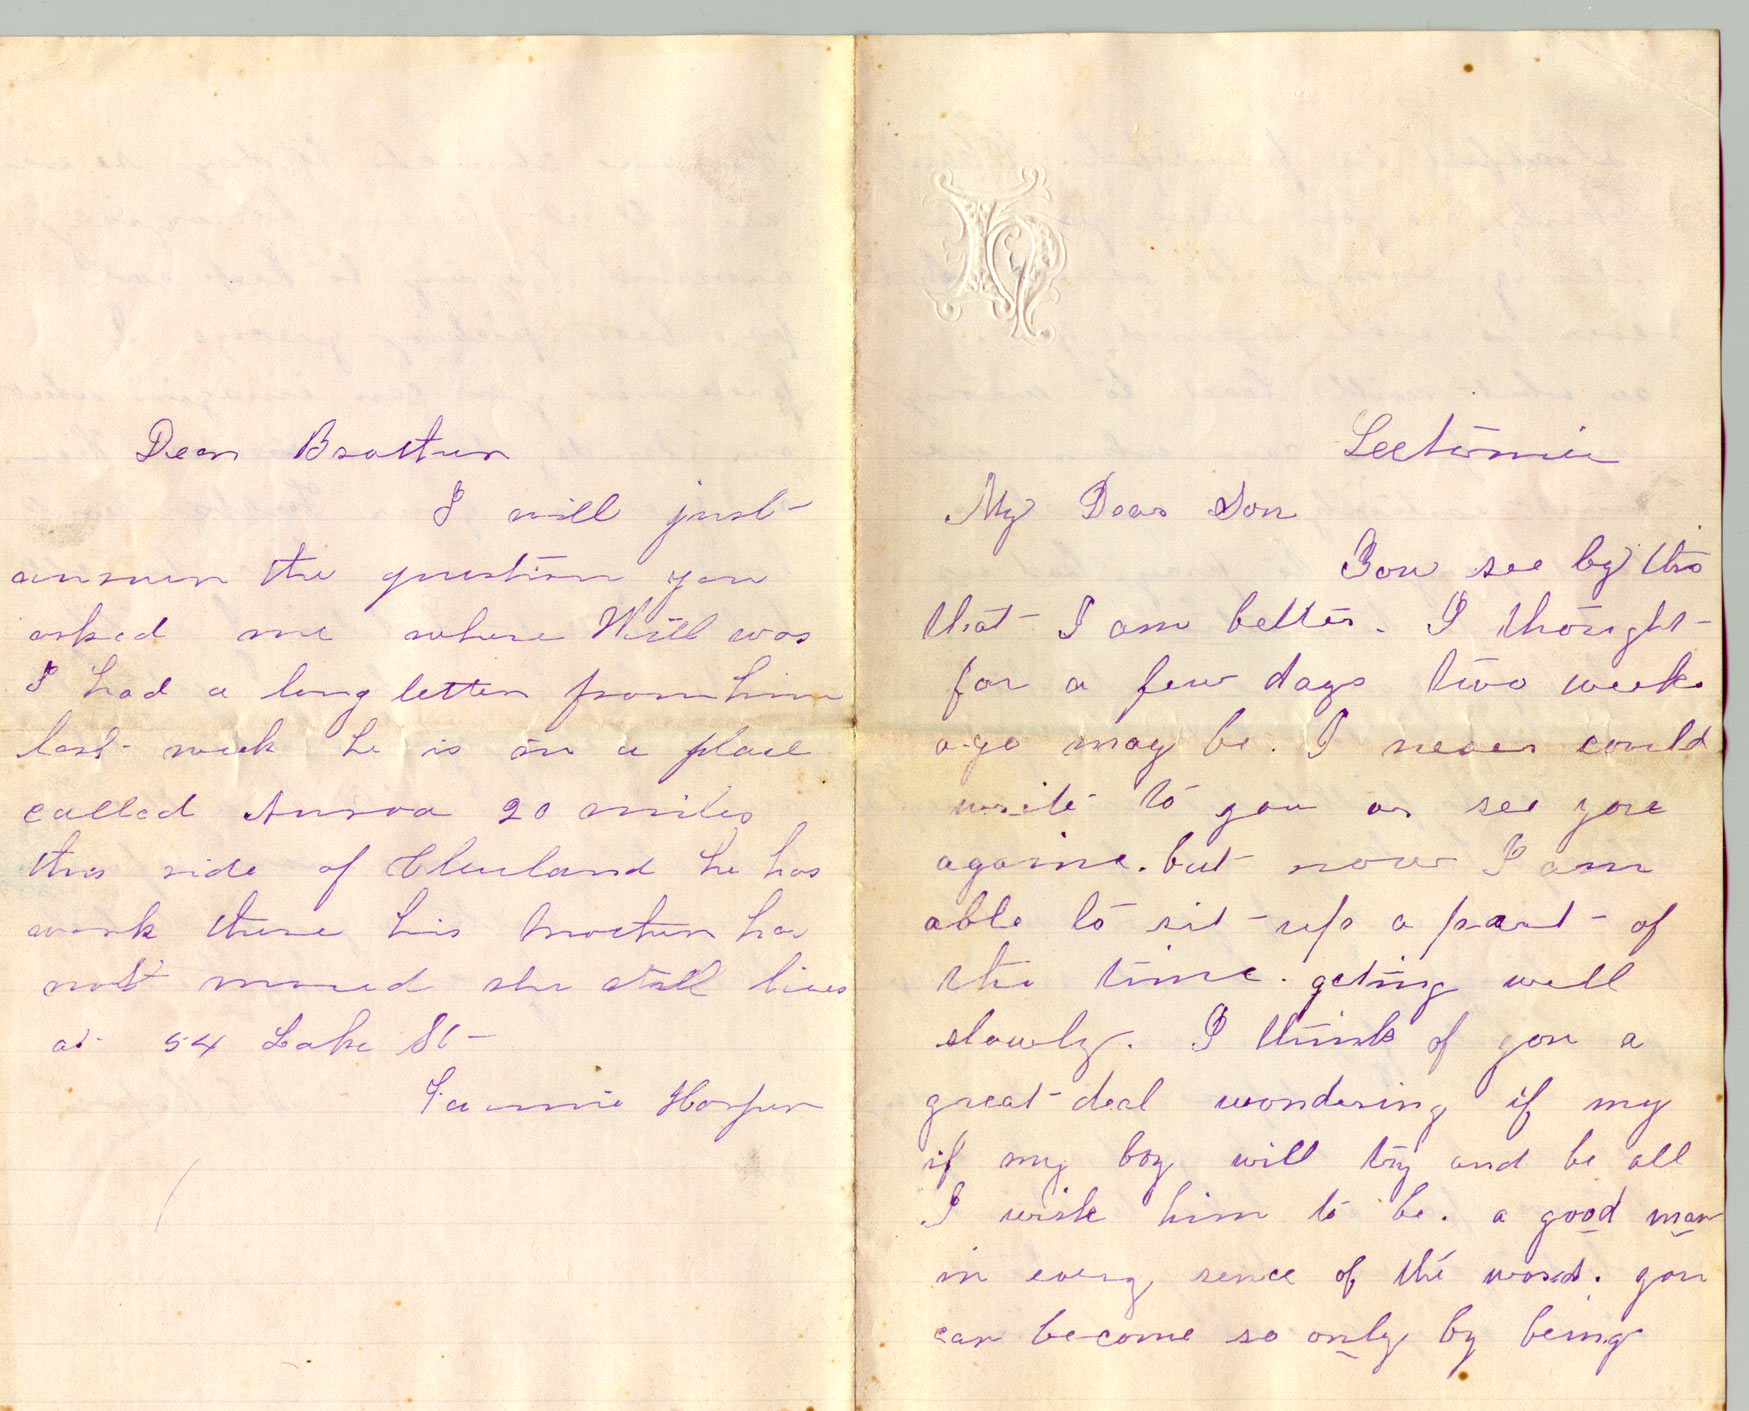 Dear Brother
I will just
answer the question you
asked me where Will was
I had a long letter from him
last week he is in a place
called Auroa 20 miles
this side of Cleveland he has
work there his mother has
not moved she still lives
at 54 Lake St
Fannie Harper
H
Leetonia
My Dear Son
You see by this
that I am better. I thought
for a few days two weeks
ago may be. I never could
write to you or see you
againe. but now I am
able to sit up a part of
the time. geting well
slowly. I think of you a
great deal wondering if my
if my boy will try and be all
I wish him to be. a good man
in every sence of the word. you
can become so only by being